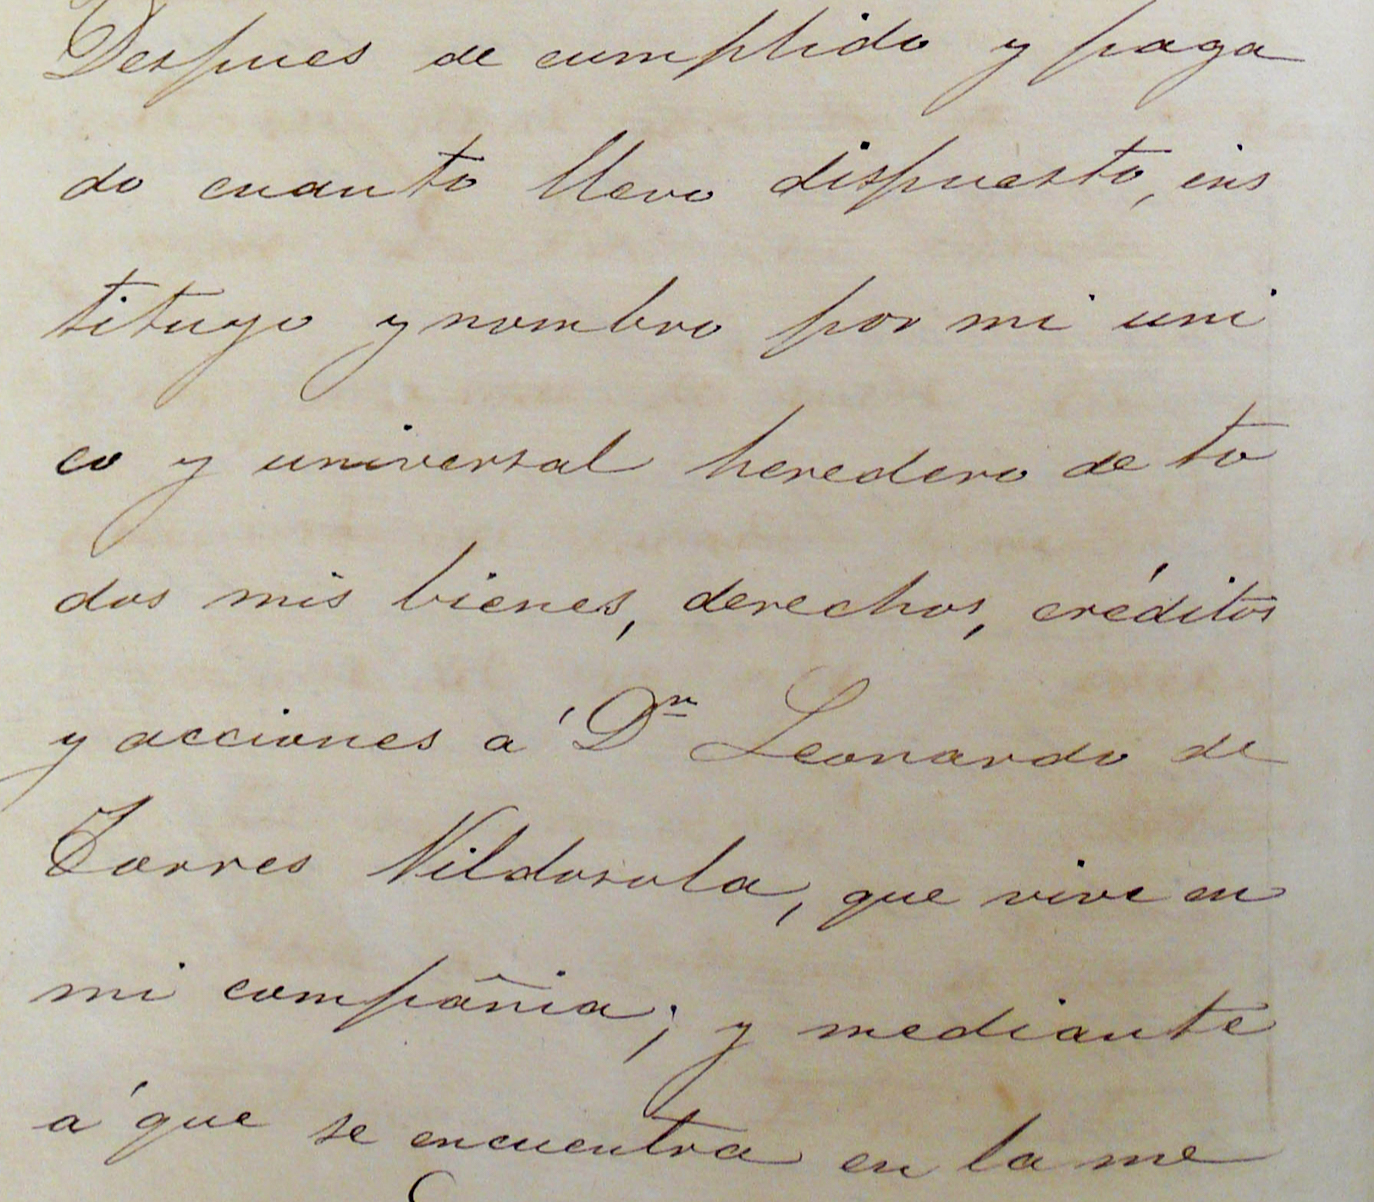 Despues de cumplido y paga
do cuanto llevo dispuesto, ins
tituyo y nombro por mi uni
co y universal heredero de to
dos mis bienes, derechos, créditos
y acciones á Dn Leonardo de
Torres Vildosola, que vive en
mi compañia; y mediante
á que se encuentra en la me